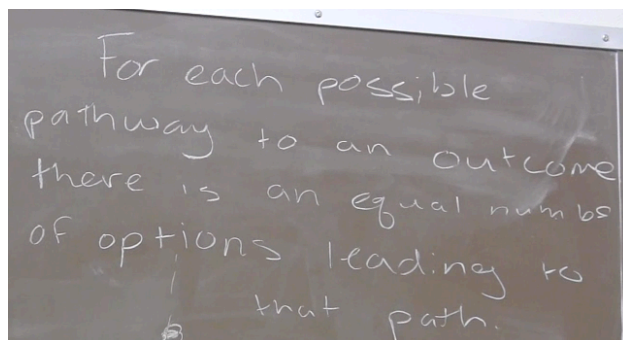 For each possible
pathway to an outcome
there is an equal numbe
of options leading to
that path.